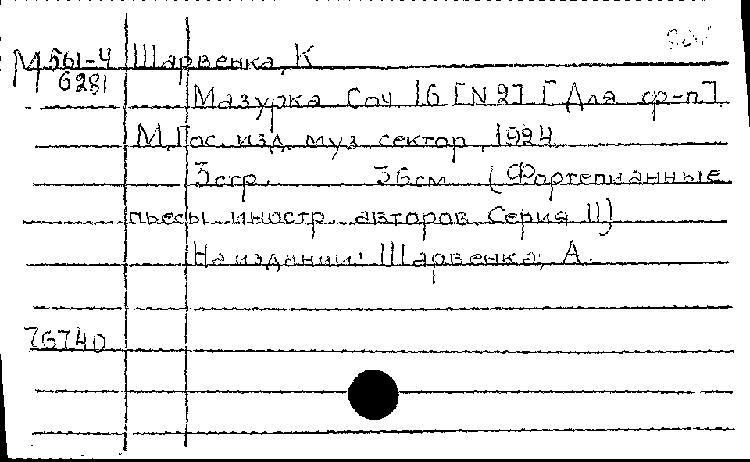 М 561-4 Шарвенка, К
6281
Мазурка Соч 16 [N 2] [Для ф-п].
М, Гос. изд. муз. сектор, 1924
3 стр. 36 см. (Фортепианные
пьесы иностр. авторов. Серия II)
На издании: Шарвенка, А.
76740